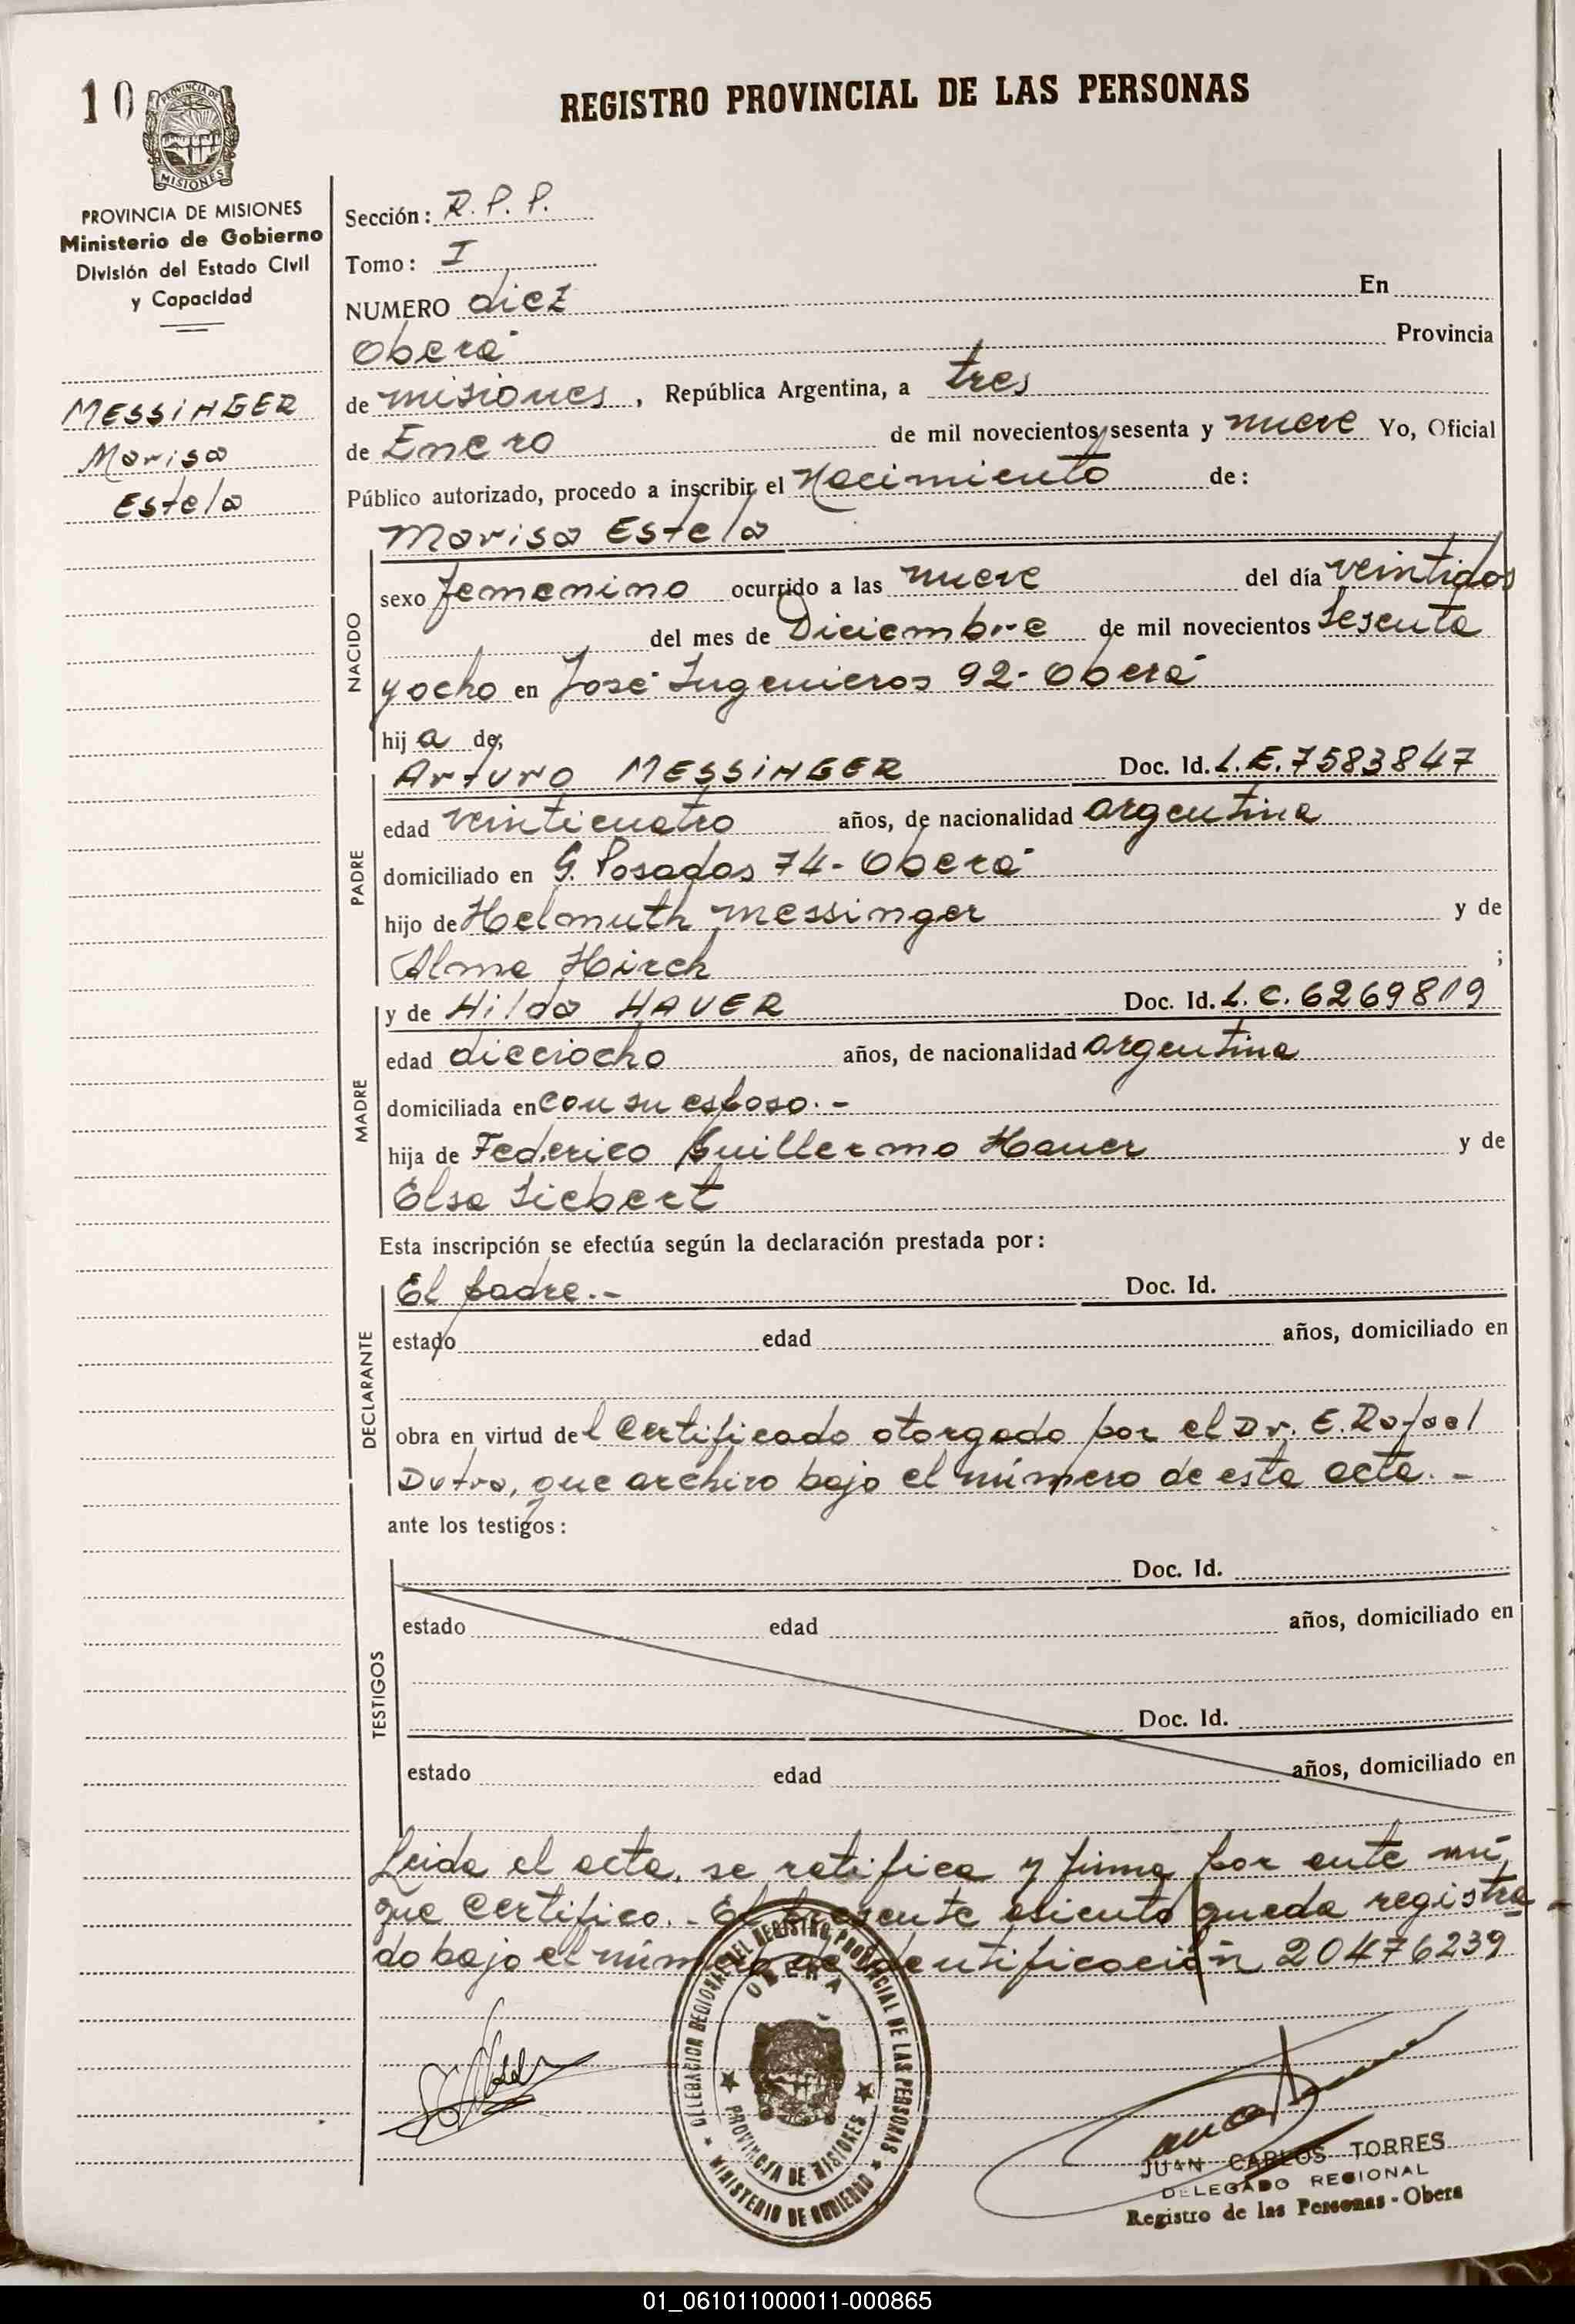 10
REGISTRO PROVINCIAL DE LAS PERSONAS
PROVINCIA DE MISIONES
PROVINCIA DE MISIONES
Ministerio de Gobierno
División del Estado Civil
y Capacidad
MESSINGER
Marisa
Estela
Sección: R. P. P.
Tomo: I
NUMERO diez En
Oberá Provincia
de misiones, República Argentina, a tres
de Enero de mil novecientos sesenta y nueve Yo, Oficial
Público autorizado, procedo a inscribir el Nacimiento de:
Marisa Estela
NACIDO
sexo femenino ocurrido a las nueve del día veintidos
del mes de Diciembre de mil novecientos sesenta
y ocho en José Ingenieros 92- Oberá
hija de;
PADRE
Arturo MESSINGER Doc. Id. L.E. 7583847
edad veinticuatro años, de nacionalidad argentina
domiciliado en G. Posadas 74- Oberá
hijo de Helmuth Messinger y de
Alma Hirch ;
MADRE
y de Hilda HAUER Doc. Id. L.C. 6269819
edad dieciocho años, de nacionalidad argentina
domiciliada en con su esposo.-
hija de Federico Guillermo Hauer y de
Elsa Siebert
Esta inscripción se efectúa según la declaración prestada por:
DECLARANTE
El padre.- Doc. Id.
estado edad años, domiciliado en
obra en virtud del certificado otorgado por el Dr. E. Rafael
Dutra, que archivo bajo el número de esta acta.-
ante los testigos:
TESTIGOS
Doc. Id.
estado edad años, domiciliado en
Doc. Id.
estado edad años, domiciliado en
Leida el acta, se ratifica y firma por ante mí,
que certifico.- El presente asiento queda registra-
do bajo el número de identificación 20476239
DELEGACION REGIONAL DEL REGISTRO PROVINCIAL DE LAS PERSONAS
OBERA
PROVINCIA DE MISIONES
MINISTERIO DE GOBIERNO
JUAN CARLOS TORRES
DELEGADO REGIONAL
Registro de las Personas - Obera
01_061011000011-000865